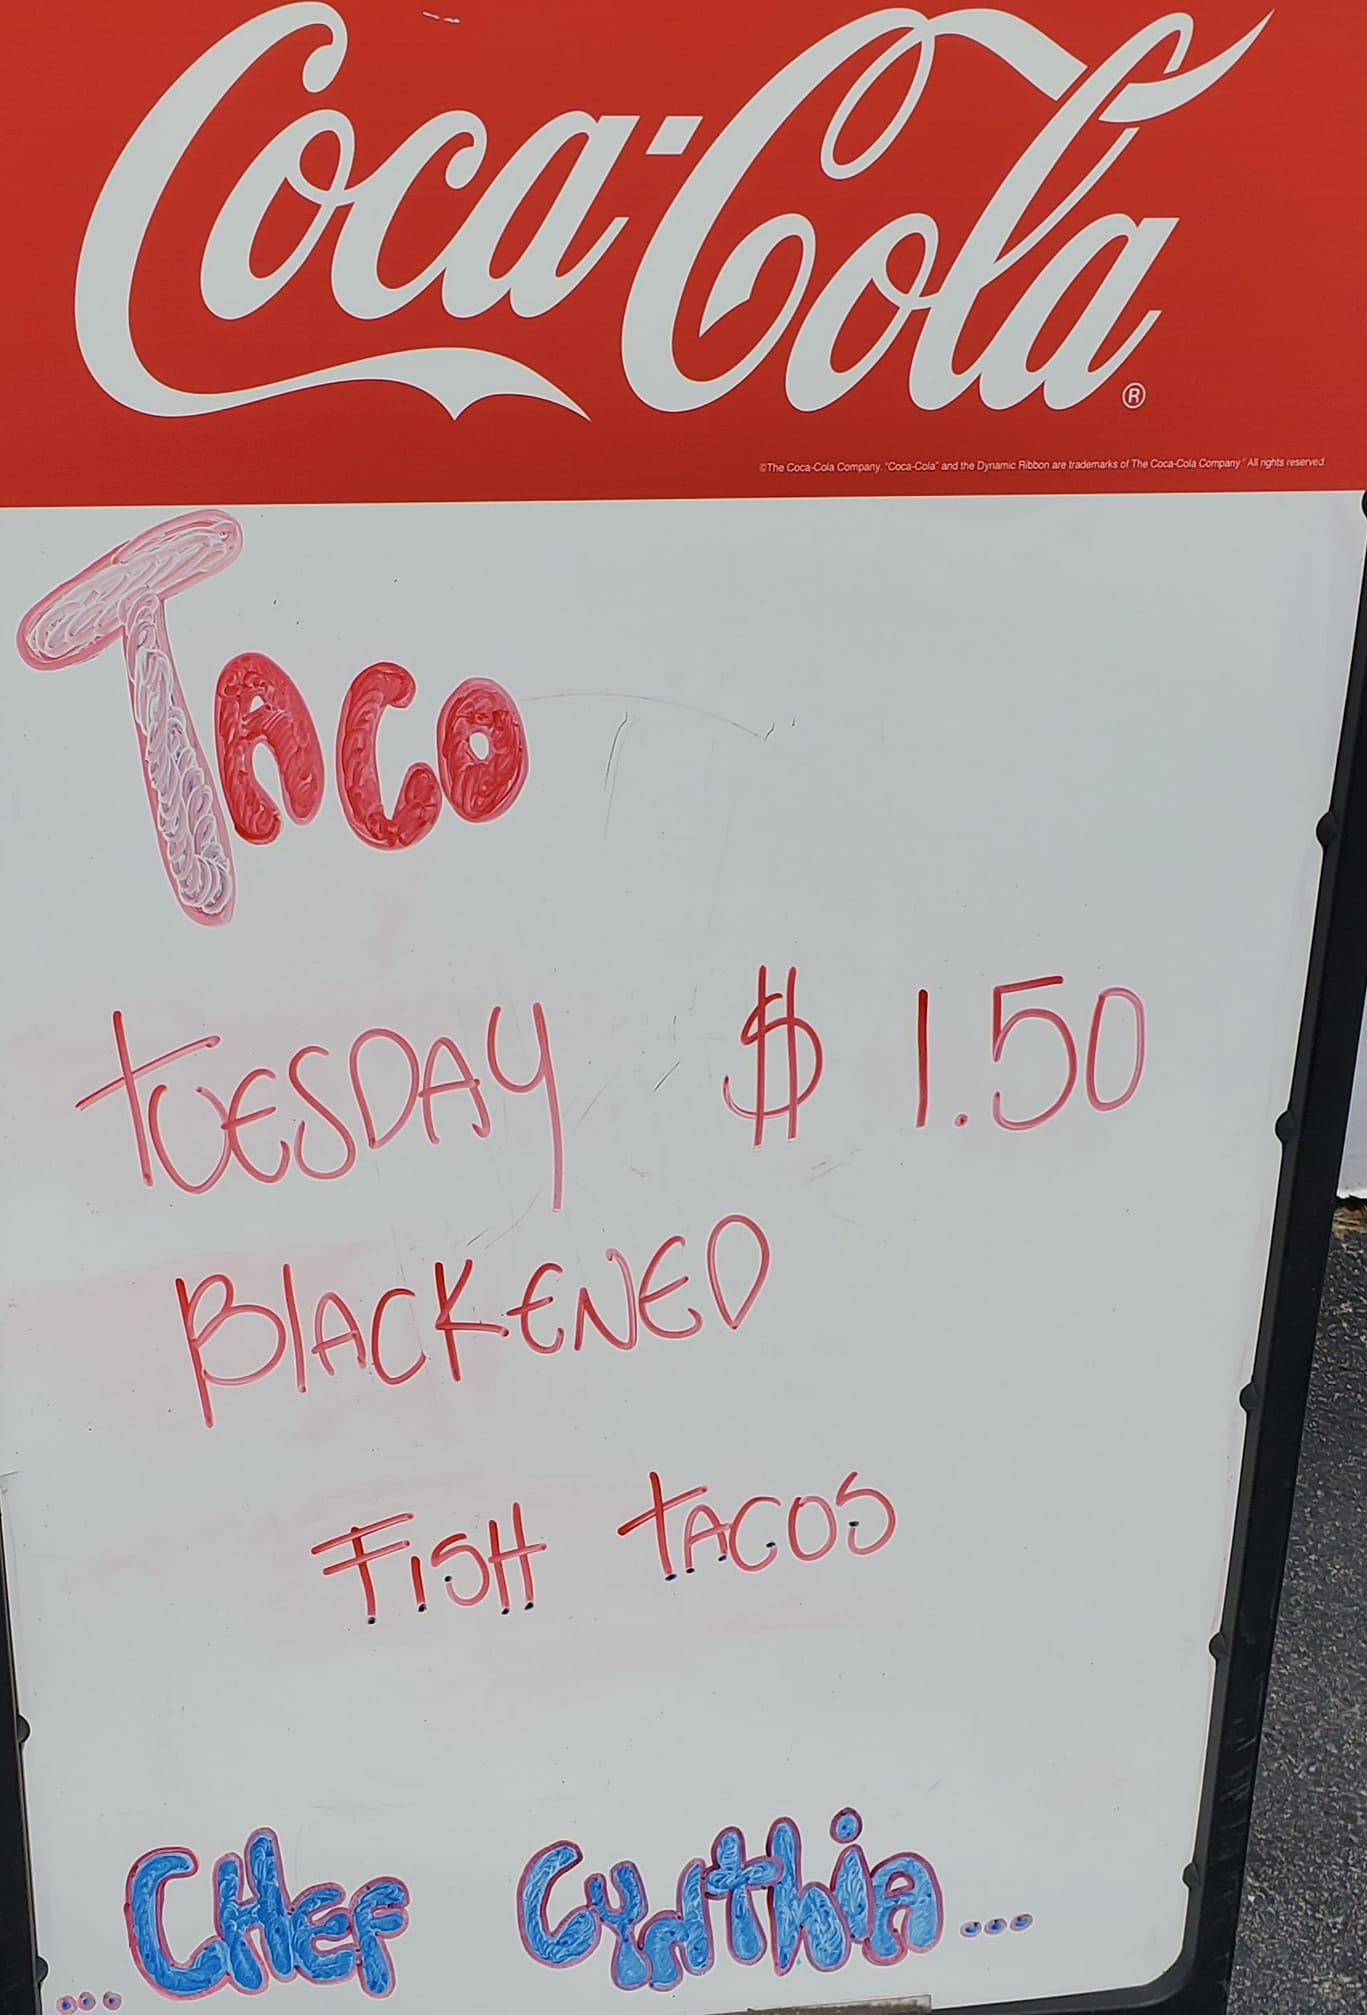 Coca-Cola®
©The Coca-Cola Company. "Coca-Cola" and the Dynamic Ribbon are trademarks of The Coca-Cola Company. All rights reserved.
TACO
TUESDAY $ 1.50
BLACKENED
FISH TACOS
...CHEF CYNTHIA...